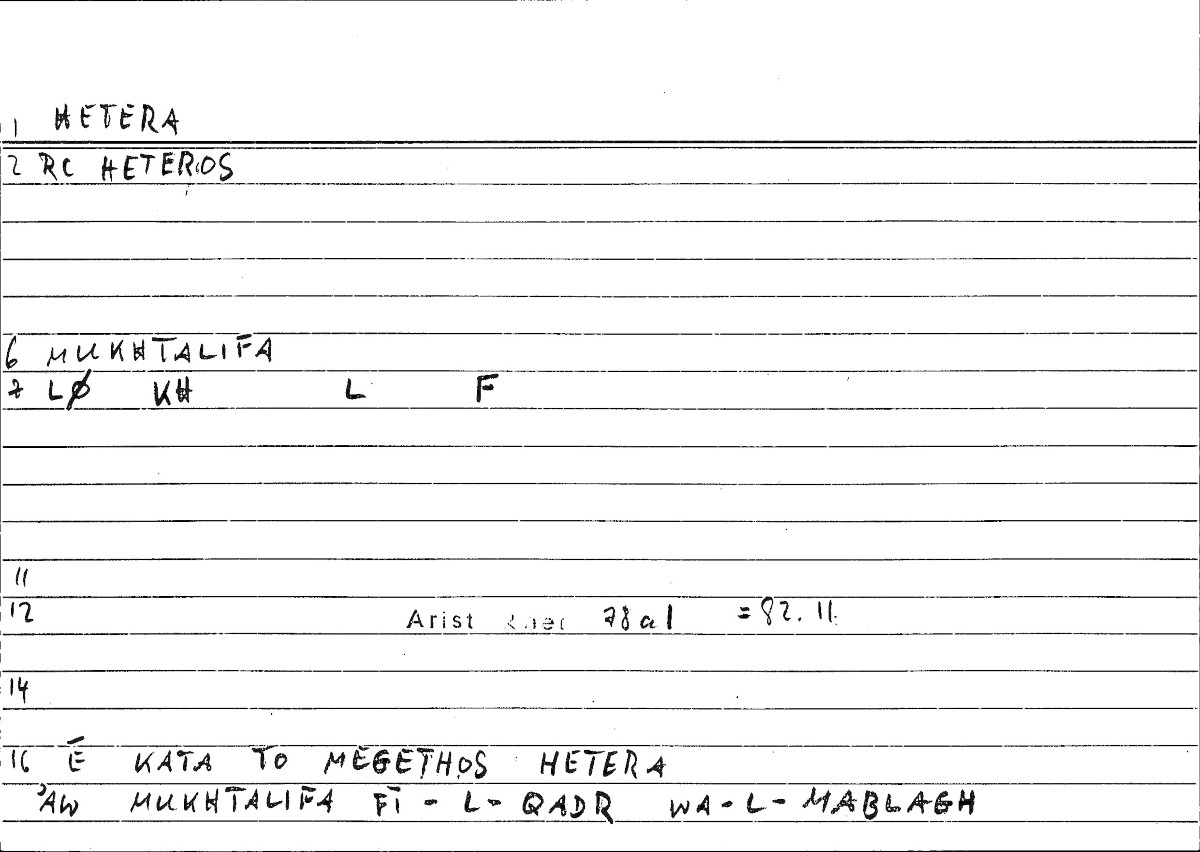 1 HETERA
2 RC HETEROS
6 MUKHTALIFA
7 LØ KH L F
11
12 Arist 78a1 = 82. 11.
14
16 Ē KATA TO MEGETHOS HETERA
ʾAW MUKHTALIFA FĪ - L - QADR WA - L - MABLAGH